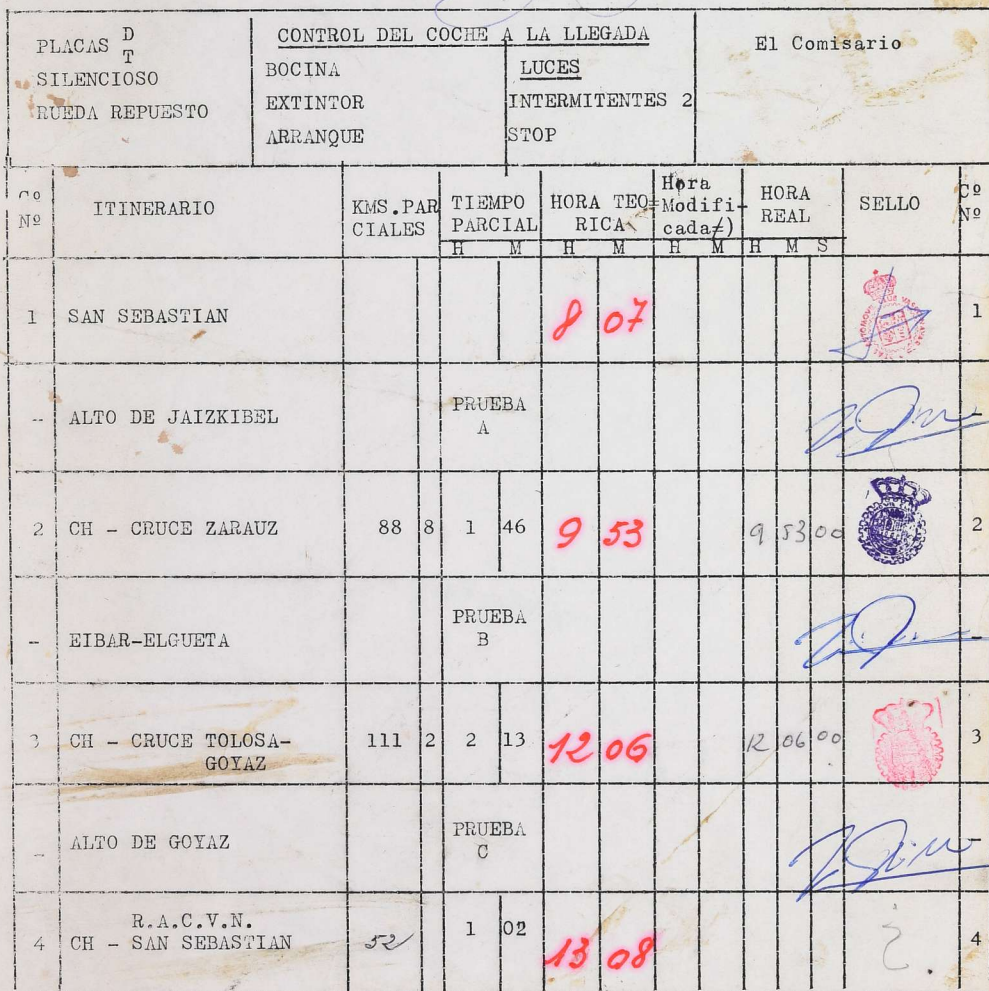 PLACAS D T
SILENCIOSO
RUEDA REPUESTO
CONTROL DEL COCHE A LA LLEGADA
BOCINA
EXTINTOR
ARRANQUE
LUCES
INTERMITENTES 2
STOP
El Comisario
Cº Nº ITINERARIO KMS.PARCIALES TIEMPO PARCIAL HORA TEO=RICA Hora Modifi-cada≠) HORA REAL SELLO Cº Nº
H M H M H M H M S
1 SAN SEBASTIAN 8 07 1
-- ALTO DE JAIZKIBEL PRUEBA A -
2 CH - CRUCE ZARAUZ 88 8 1 46 9 53 9 53 00 2
- EIBAR-ELGUETA PRUEBA B -
3 CH - CRUCE TOLOSA-GOYAZ 111 2 2 13 12 06 12 06 00 3
- ALTO DE GOYAZ PRUEBA C -
R.A.C.V.N.
4 CH - SAN SEBASTIAN 52 1 02 13 08 4